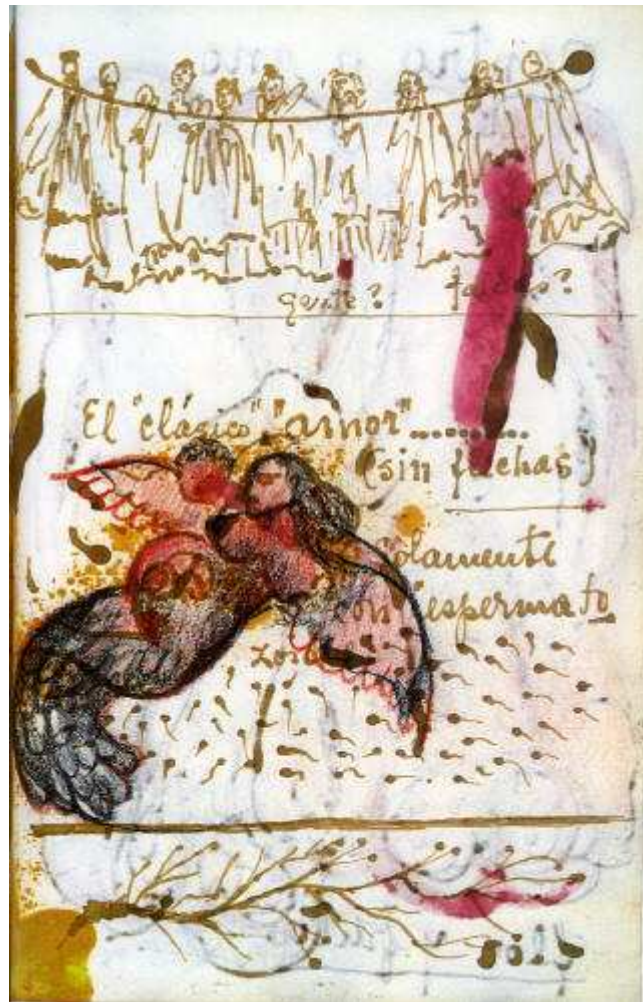 gente? faldas?
El "clásico" "amor".........
(sin flechas)
solamente
con "espermato